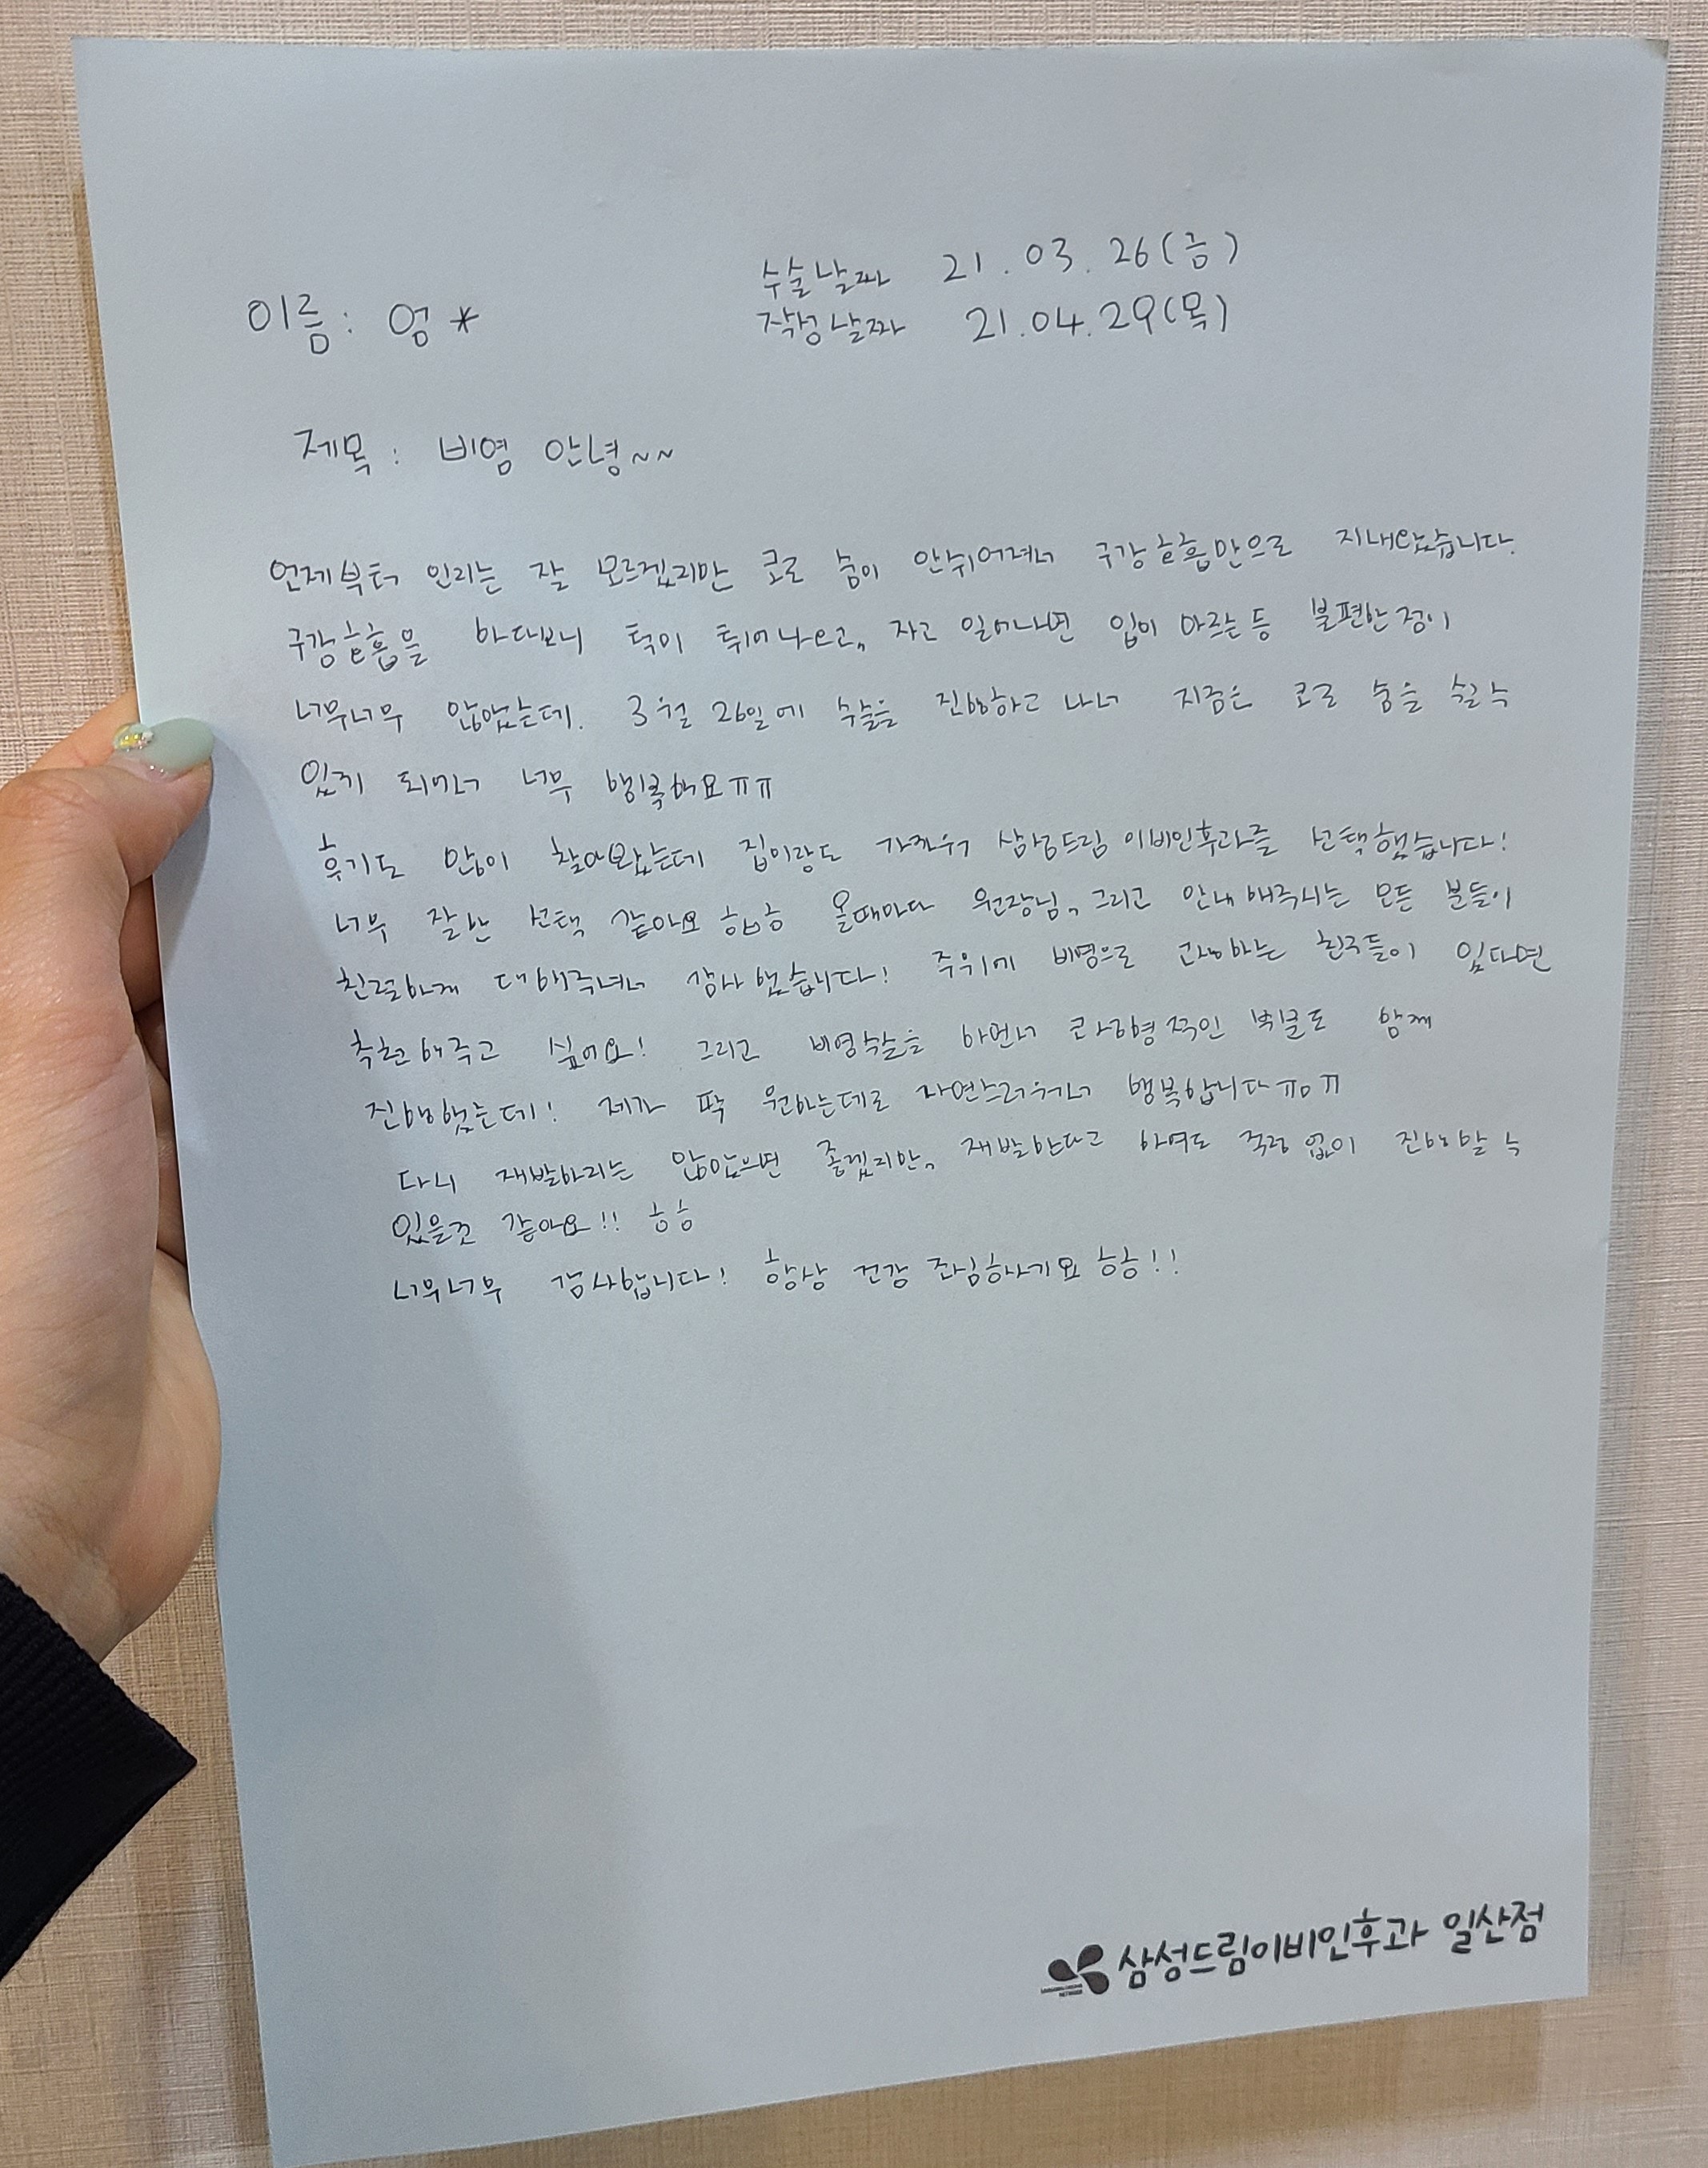 수술날짜 21.03.26(금)
이름: 엄* 작성날짜 21.04.29(목)
제목: 비염 안녕~~
언제부터 인지는 잘 모르겠지만 코로 숨이 안쉬어져서 구강호흡만으로 지내왔습니다.
구강호흡을 하다보니 턱이 튀어나오고, 자고 일어나면 입이 마르는 등 불편한 점이
너무너무 많았는데. 3월 26일에 수술을 진행하고 나서 지금은 코로 숨을 쉴 수
있게 되어서 너무 행복해요ㅠㅠ
후기도 많이 찾아봤는데 집이랑도 가까워 삼성드림이비인후과를 선택했습니다!
너무 잘한 선택 같아요 ㅎㅎㅎ 올때마다 원장님, 그리고 안내해주시는 모든 분들이
친절하게 대해주셔서 감사했습니다! 주위에 비염으로 고생하는 친구들이 있다면
추천해주고 싶어요! 그리고 비염수술을 하면서 코 하이형적인 부분도 함께
진행했는데! 제가 딱 원하는데로 자연스러워서 행복합니다ㅠㅁㅠ
다시 재발하지는 않았으면 좋겠지만, 재발한다고 하여도 걱정 없이 진행할 수
있을것 같아요!! ㅎㅎ
너무너무 감사합니다! 항상 건강 조심하시기요 ㅎㅎ!!
삼성드림이비인후과 일산점